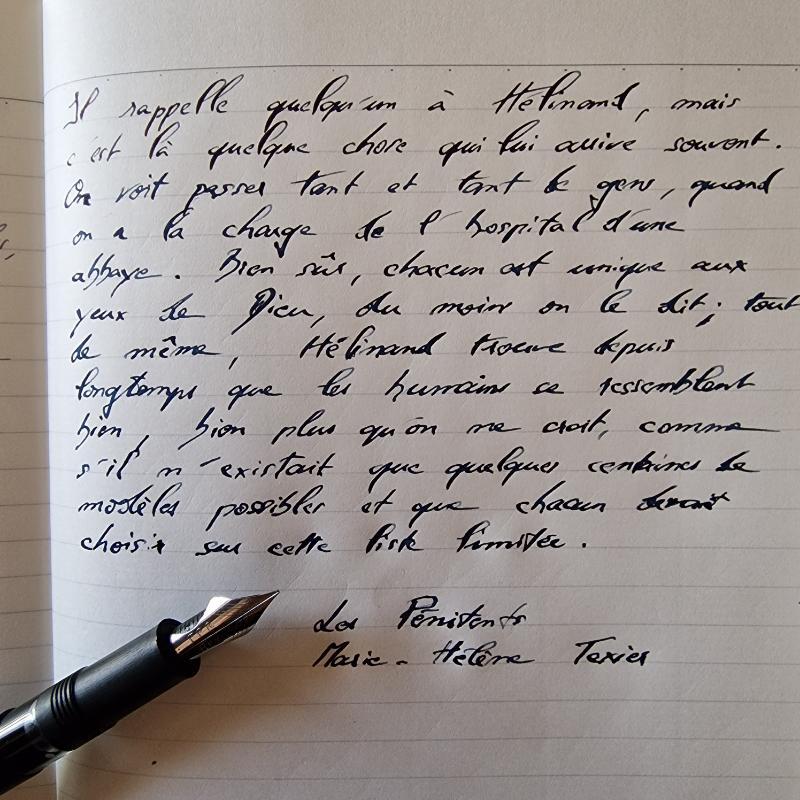 Il rappelle quelqu'un à Hélinand, mais
c'est là quelque chose qui lui arrive souvent.
On voit passer tant et tant de gens, quand
on a la charge de l'hospital d'une
abbaye. Bien sûr, chacun est unique aux
yeux de Dieu, du moins on le dit ; tout
de même, Hélinand trouve depuis
longtemps que les humains se ressemblent
bien, bien plus qu'on ne croit, comme
s'il n'existait que quelques centaines de
modèles possibles et que chacun devait
choisir sur cette liste limitée.
Les Pénitents
Marie-Hélène Texier